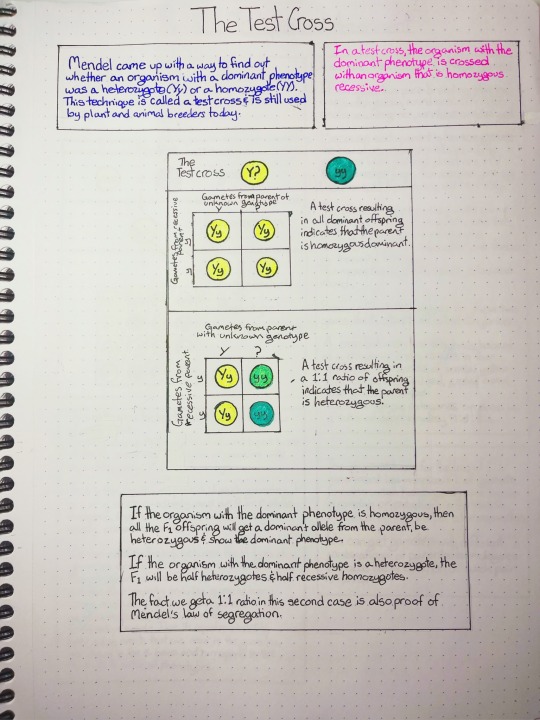 The Test Cross
Mendel came up with a way to find out
whether an organism with a dominant phenotype
was a heterozygote (Yy) or a homozygote (YY).
This technique is called a testcross & is still used
by plant and animal breeders today.
In a test cross, the organism with the
dominant phenotype is crossed
with an organism that is homozygous
recessive.
The
Testcross
Y?
yy
Gametes from parent of
unknown genotype
Y ?
Gametes from recessive
parent
y
y
Yy Yy
Yy Yy
A test cross resulting
in all dominant offspring
indicates that the parent
is homozygous dominant.
Gametes from parent
with unknown genotype
Y ?
Gametes from
recessive parent
y
y
Yy yy
Yy yy
A test cross resulting in
a 1:1 ratio of offspring
indicates that the parent
is heterozygous.
If the organism with the dominant phenotype is homozygous, then
all the F₁ offspring will get a dominant allele from the parent, be
heterozygous & show the dominant phenotype.
If the organism with the dominant phenotype is a heterozygote, the
F₁ will be half heterozygotes & half recessive homozygotes.
The fact we get a 1:1 ratio in this second case is also proof of
Mendel's law of segregation.